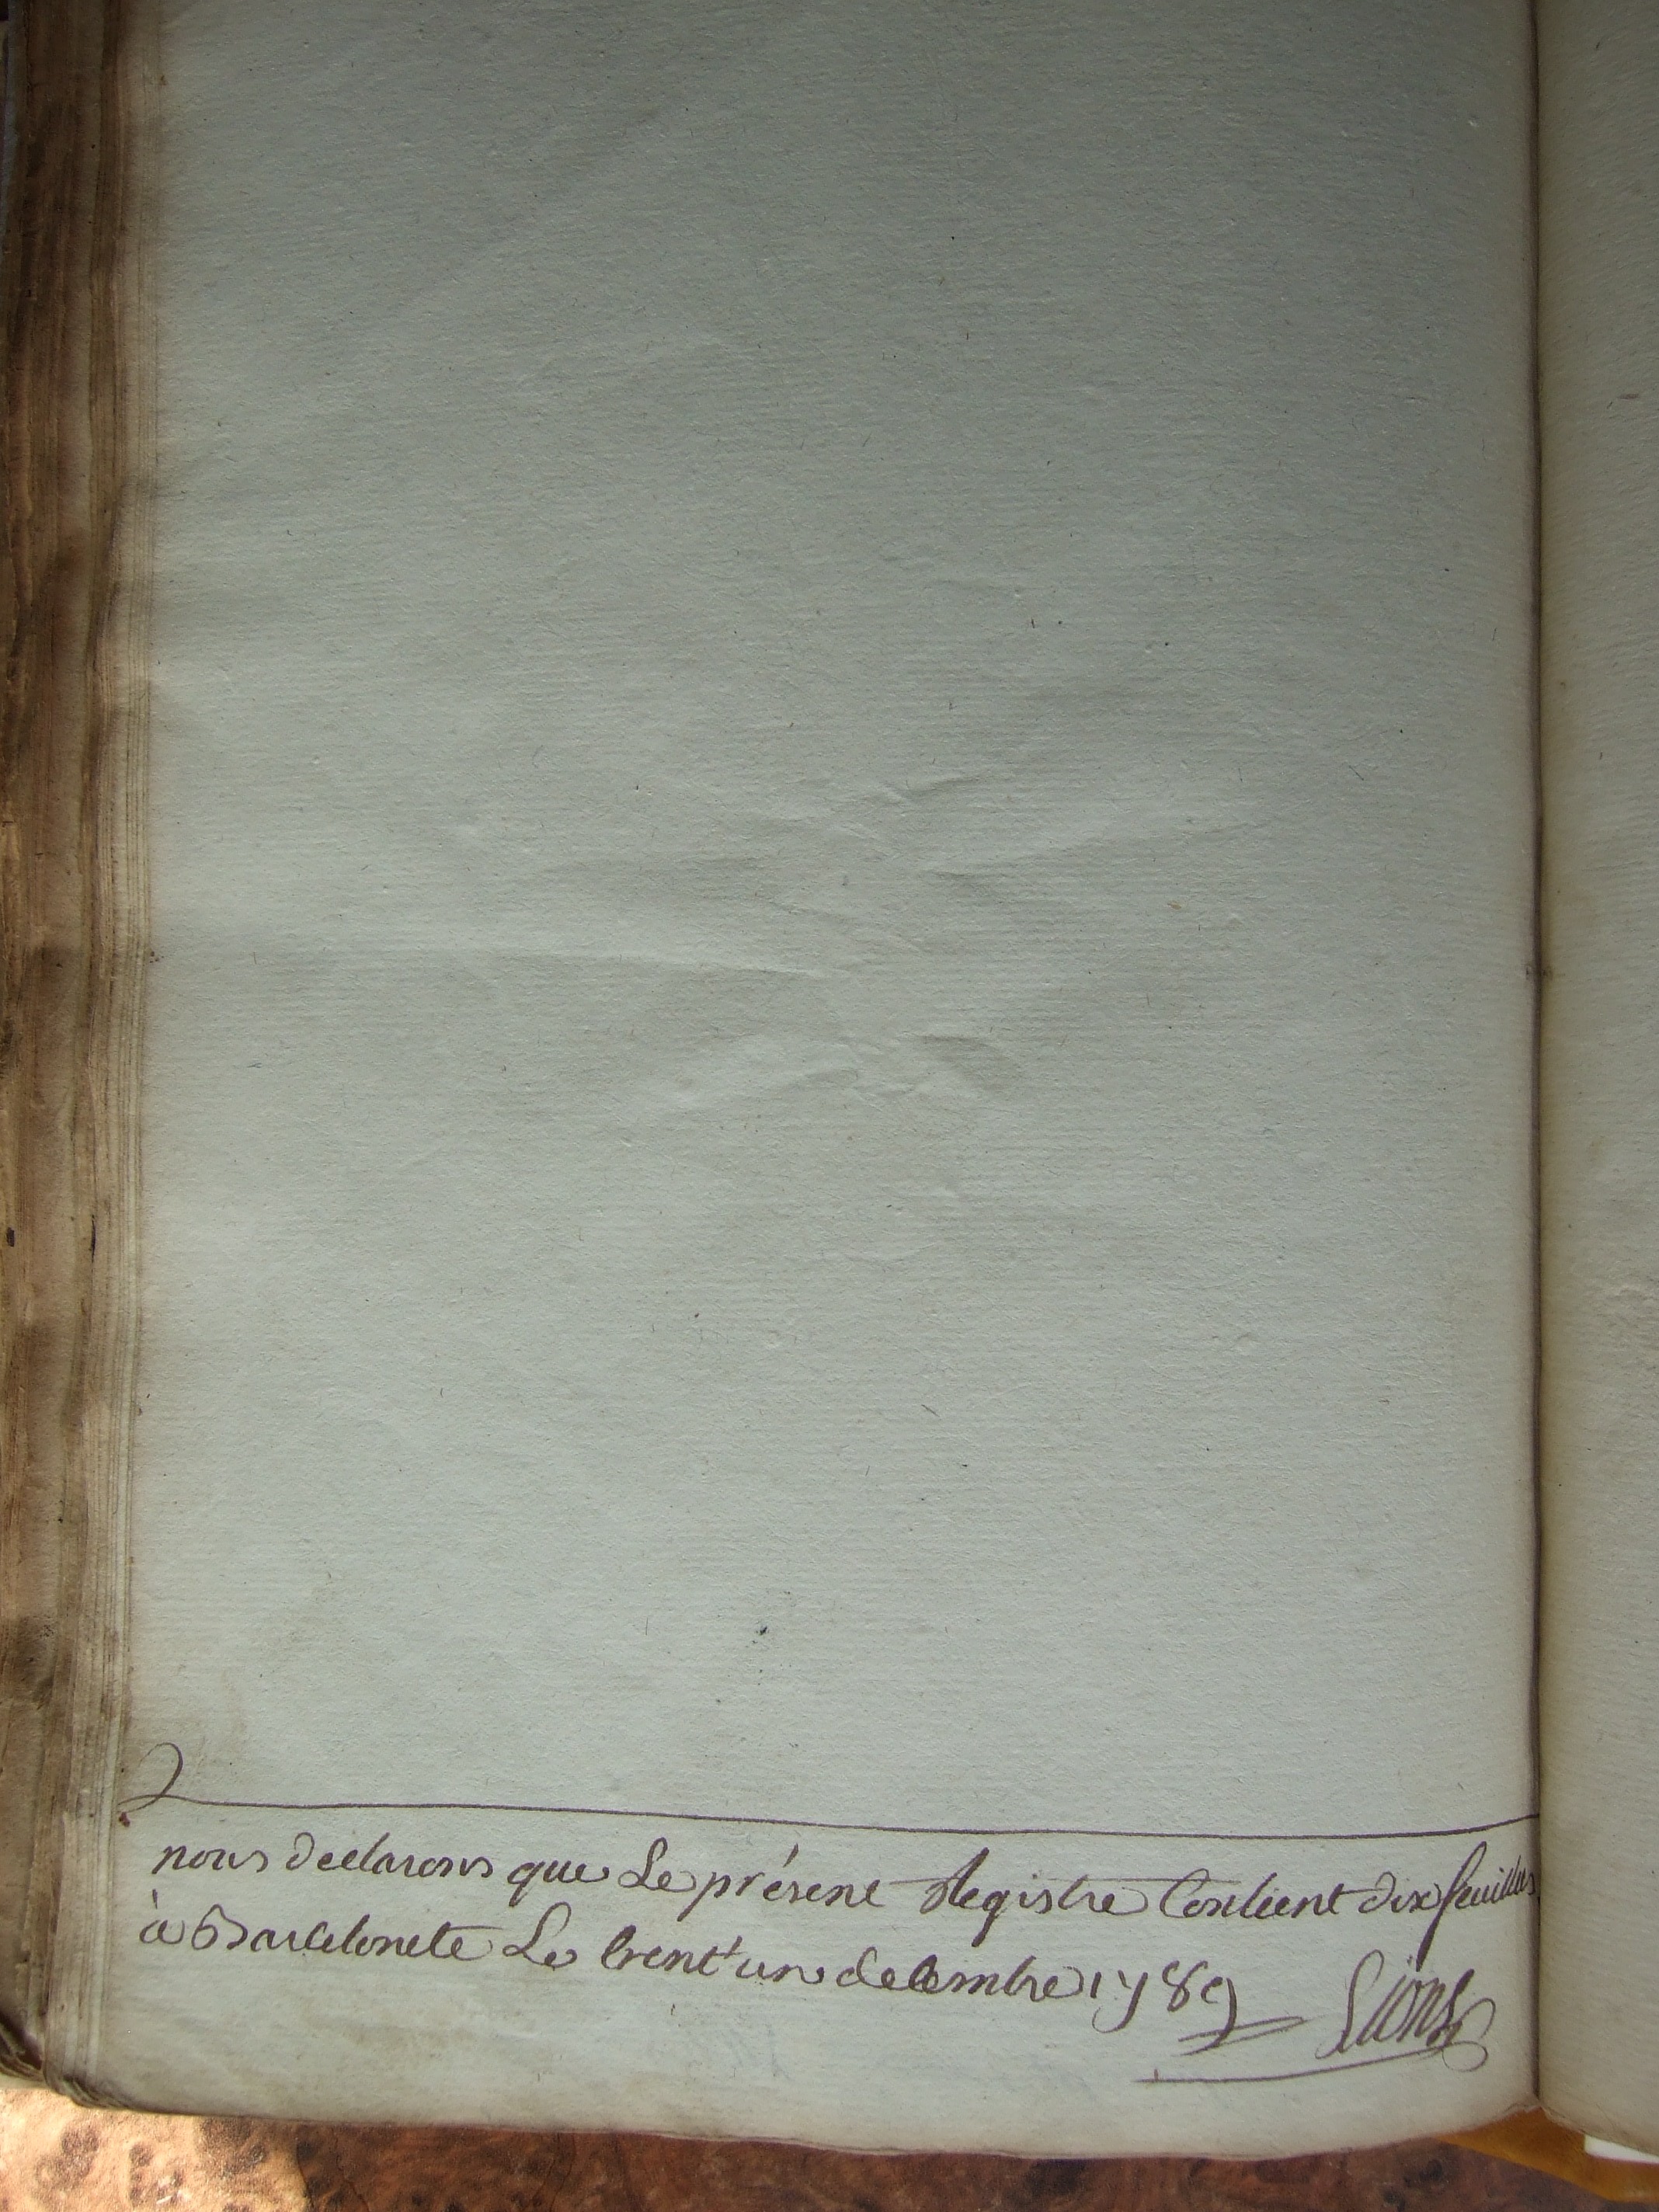 nous declarons que Le présent Registre Contient dix feuilles
à Barcelonete Le trent'un decembre 1789
Lions